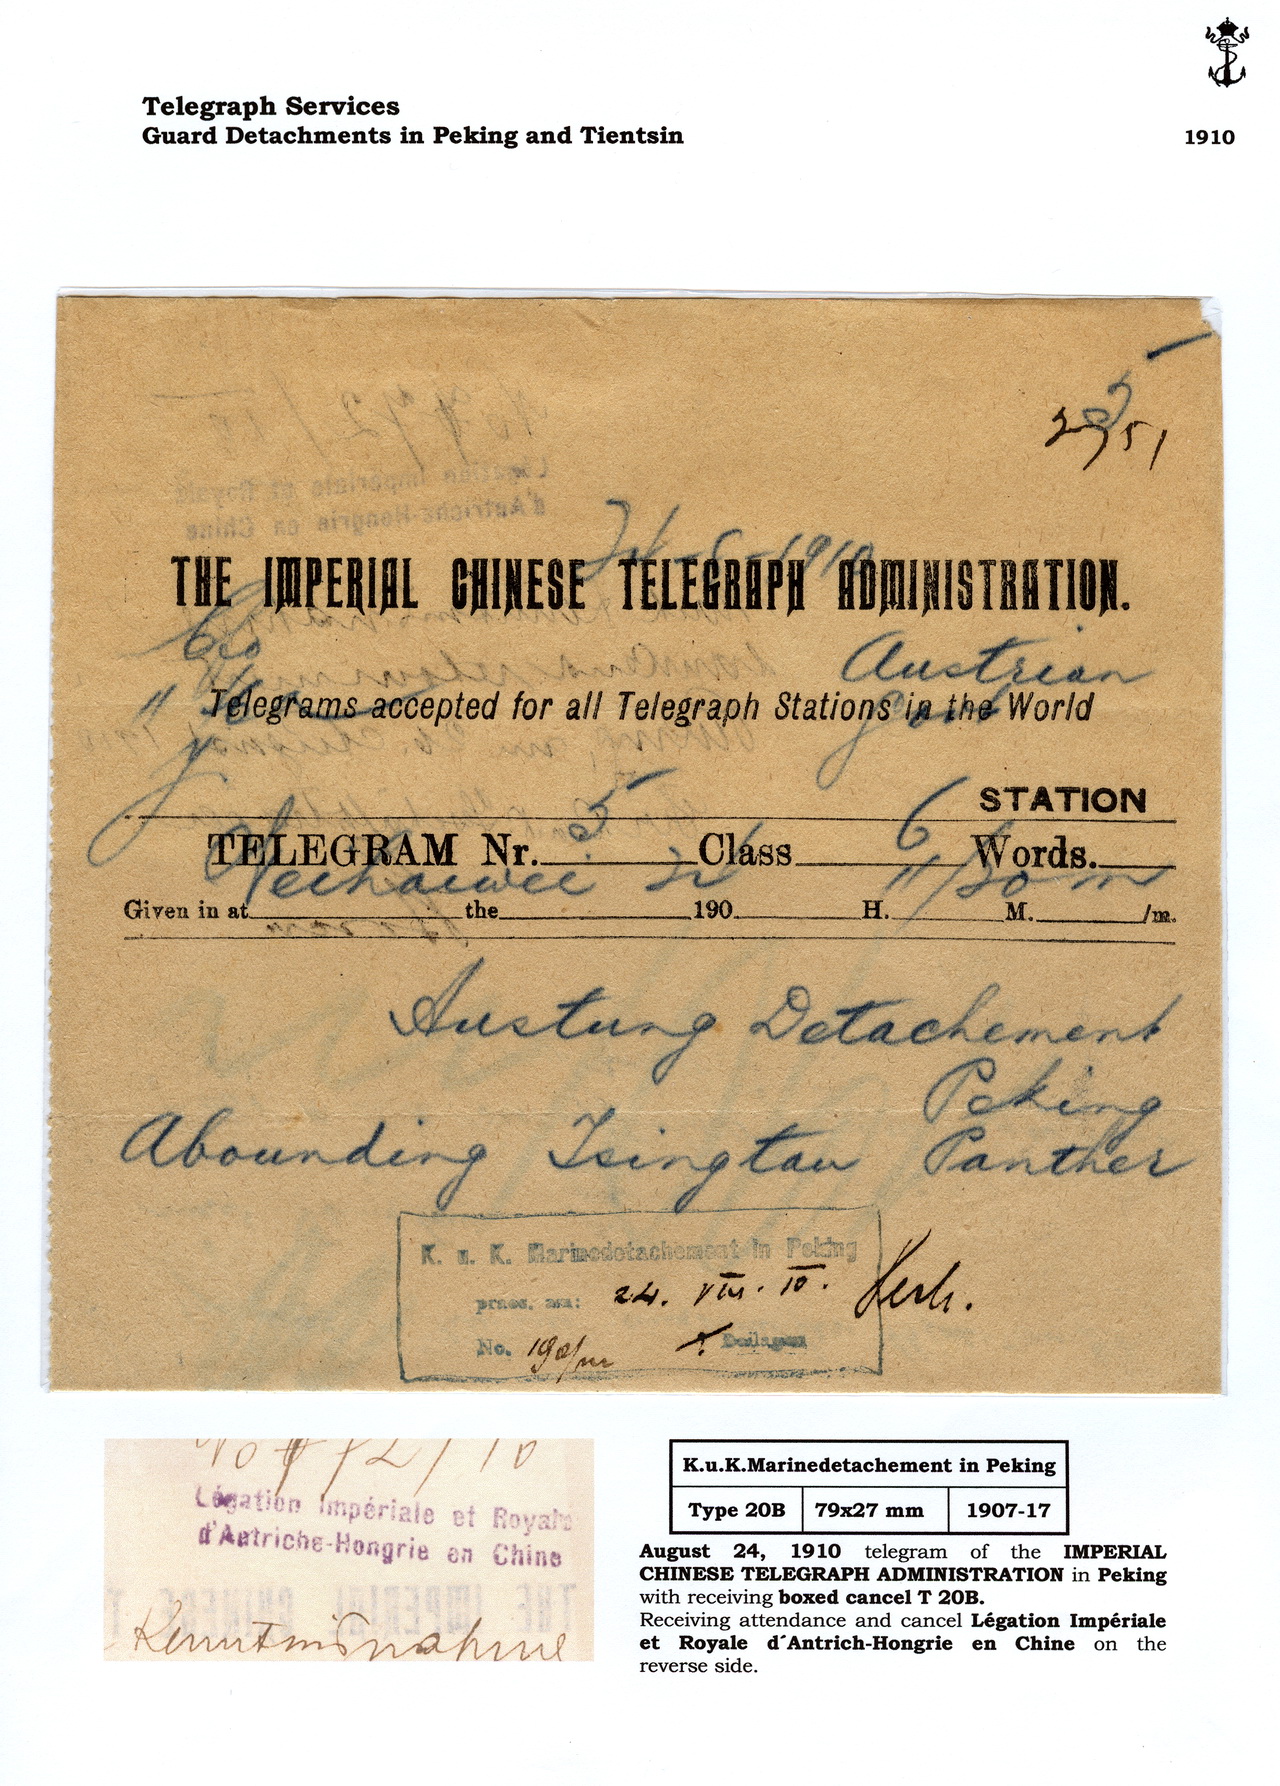 Telegraph Services
Guard Detachments in Peking and Tientsin
1910
2951
24 - 8 - 1910
THE IMPERIAL CHINESE TELEGRAPH ADMINISTRATION.
Austrian
Telegrams accepted for all Telegraph Stations in the World
STATION
TELEGRAM Nr. 5 Class 6 Words.
Given in at the 24 190 H. 11/20 M. /m.
Austung Detachement
Peking
Abounding Tsingtau Panther
K. u. K. Marinedetachement in Peking
praes. am: 24. VIII. 10.
No. 190/m Beilagen
Légation Impériale et Royale
d'Autriche-Hongrie en Chine
Kenntnisnahme
K.u.K.Marinedetachement in Peking
Type 20B 79x27 mm 1907-17
August 24, 1910 telegram of the IMPERIAL
CHINESE TELEGRAPH ADMINISTRATION in Peking
with receiving boxed cancel T 20B.
Receiving attendance and cancel Légation Impériale
et Royale d´Antrich-Hongrie en Chine on the
reverse side.